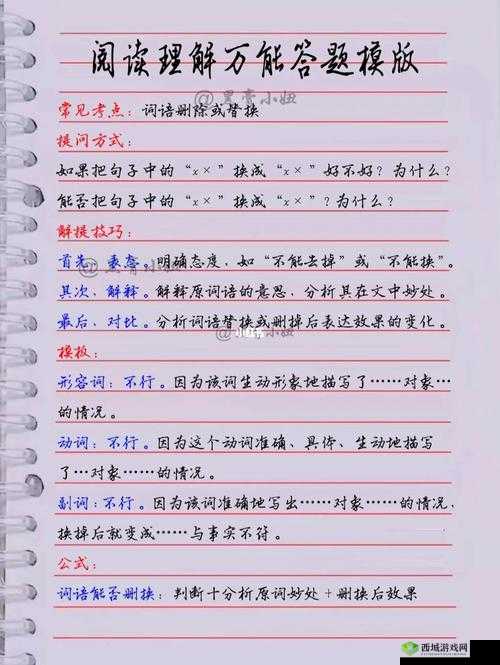 阅读理解万能答题模版
@里膏小妞
常见考点：词语删除或替换
提问方式：
如果把句子中的“××”换成“××”好不好？为什么？
能否把句子中的“××”换成“××”？为什么？
解题技巧：
首先，表态。明确态度，如“不能去掉”或“不能换”。
其次，解释。解释原词语的意思，分析其在文中妙处。
最后，对比。分析词语替换或删掉后表达效果的变化。
小红书
模板：
形容词：不行。因为该词生动形象地描写了……对象…
的情况。
动词：不行。因为这个动词准确、具体、生动地描写
了…对象……的情况。
副词：不行。因为该词准确地写出……对象……的情况，
换掉后就变成……与事实不符。
公式：
词语能否删换：判断十分析原词妙处+删换后效果
西城游戏网